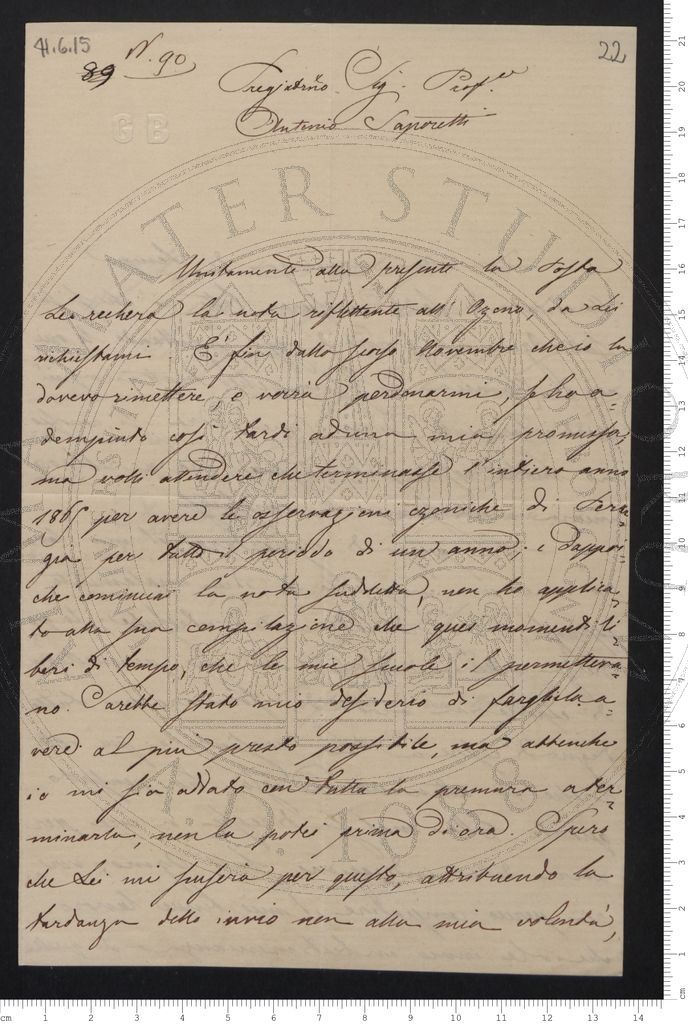 41.6.15
22
89 N. 90
Pregiatmo Sig. Prof.re
Antonio Saporetti
GB
Unitamente alla presente la Posta
Le recherà la nota riflettente all'Ozono, da Lei
richiestami. E' fin dallo scorso Novembre che io la
dovevo rimettere, e vorrà perdonarmi, se ho a-
dempiuto così tardi ad una mia promessa,
ma volli attendere che terminasse l'intiero anno
1865 per avere le osservazioni ozoniche di Peru-
gia per tutto il periodo di un anno; e dappoi-
che cominciai la nota suddetta, non ho applica-
to alla sua compilazione che quei momenti li-
beri di tempo, che le mie scuole il permetteva-
no. Sarebbe stato mio desiderio di fargliela a-
vere al più presto possibile, ma abbenche
io mi sia addato con tutta la premura a ter-
minarla, non la potei prima di ora. Spero
che Lei mi scuserà per questo, attribuendo la
tardanza dello invio non alla mia volontà,
ALMA MATER STUDIORUM
A.D. 1088